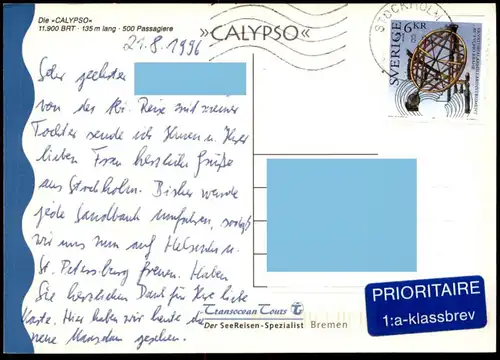 Die »CALYPSO«
11.900 BRT · 135 m lang · 500 Passagiere
»CALYPSO«
STOCKHOLM
SVERIGE 6KR
21.8.1996
Sehr geehrter
von der Reise mit meiner
Tochter sende ich Ihnen u. Ihrer
lieben Frau herzliche Grüße
aus Stockholm. Bisher wurde
jede Sandbank umfahren, sodaß
wir uns nun auf Helsinki u.
St. Petersburg freuen. Haben
Sie herzlichen Dank für Ihre liebe
Karte. Hier haben wir heute das
neue Museum gesehen.
Transocean Tours
Der SeeReisen-Spezialist Bremen
PRIORITAIRE
1:a-klassbrev